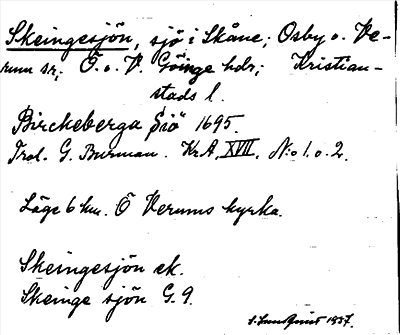 Skeingesjön, sjö i Skåne; Osby o. Ve-
rum sr; Ö. o. V. Göinge hdr; Kristian-
stads l.
"Birckeberga Siö" 1695.
Trol. G. Burman. Kr. A. XVII. N:o 1. o. 2.
Läge 6 km. Ö Verums kyrka.
Skeingesjön ek.
Skeinge sjön G. 9.
S. Lundquist 1937.